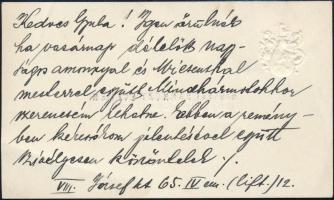 Kedves Gyula! Igen örülnék
ha vasárnap délelőtt nap-
ságos asszonnyal és Wiesenthal
mesterrel együtt Mindhármotokhoz
szerencsém lehetne. Ebben a remény-
ben kézcsókom jelentésével együtt
szívélyesen köszöntelek
VIII. József krt 65. IV em. (lift.) 12.